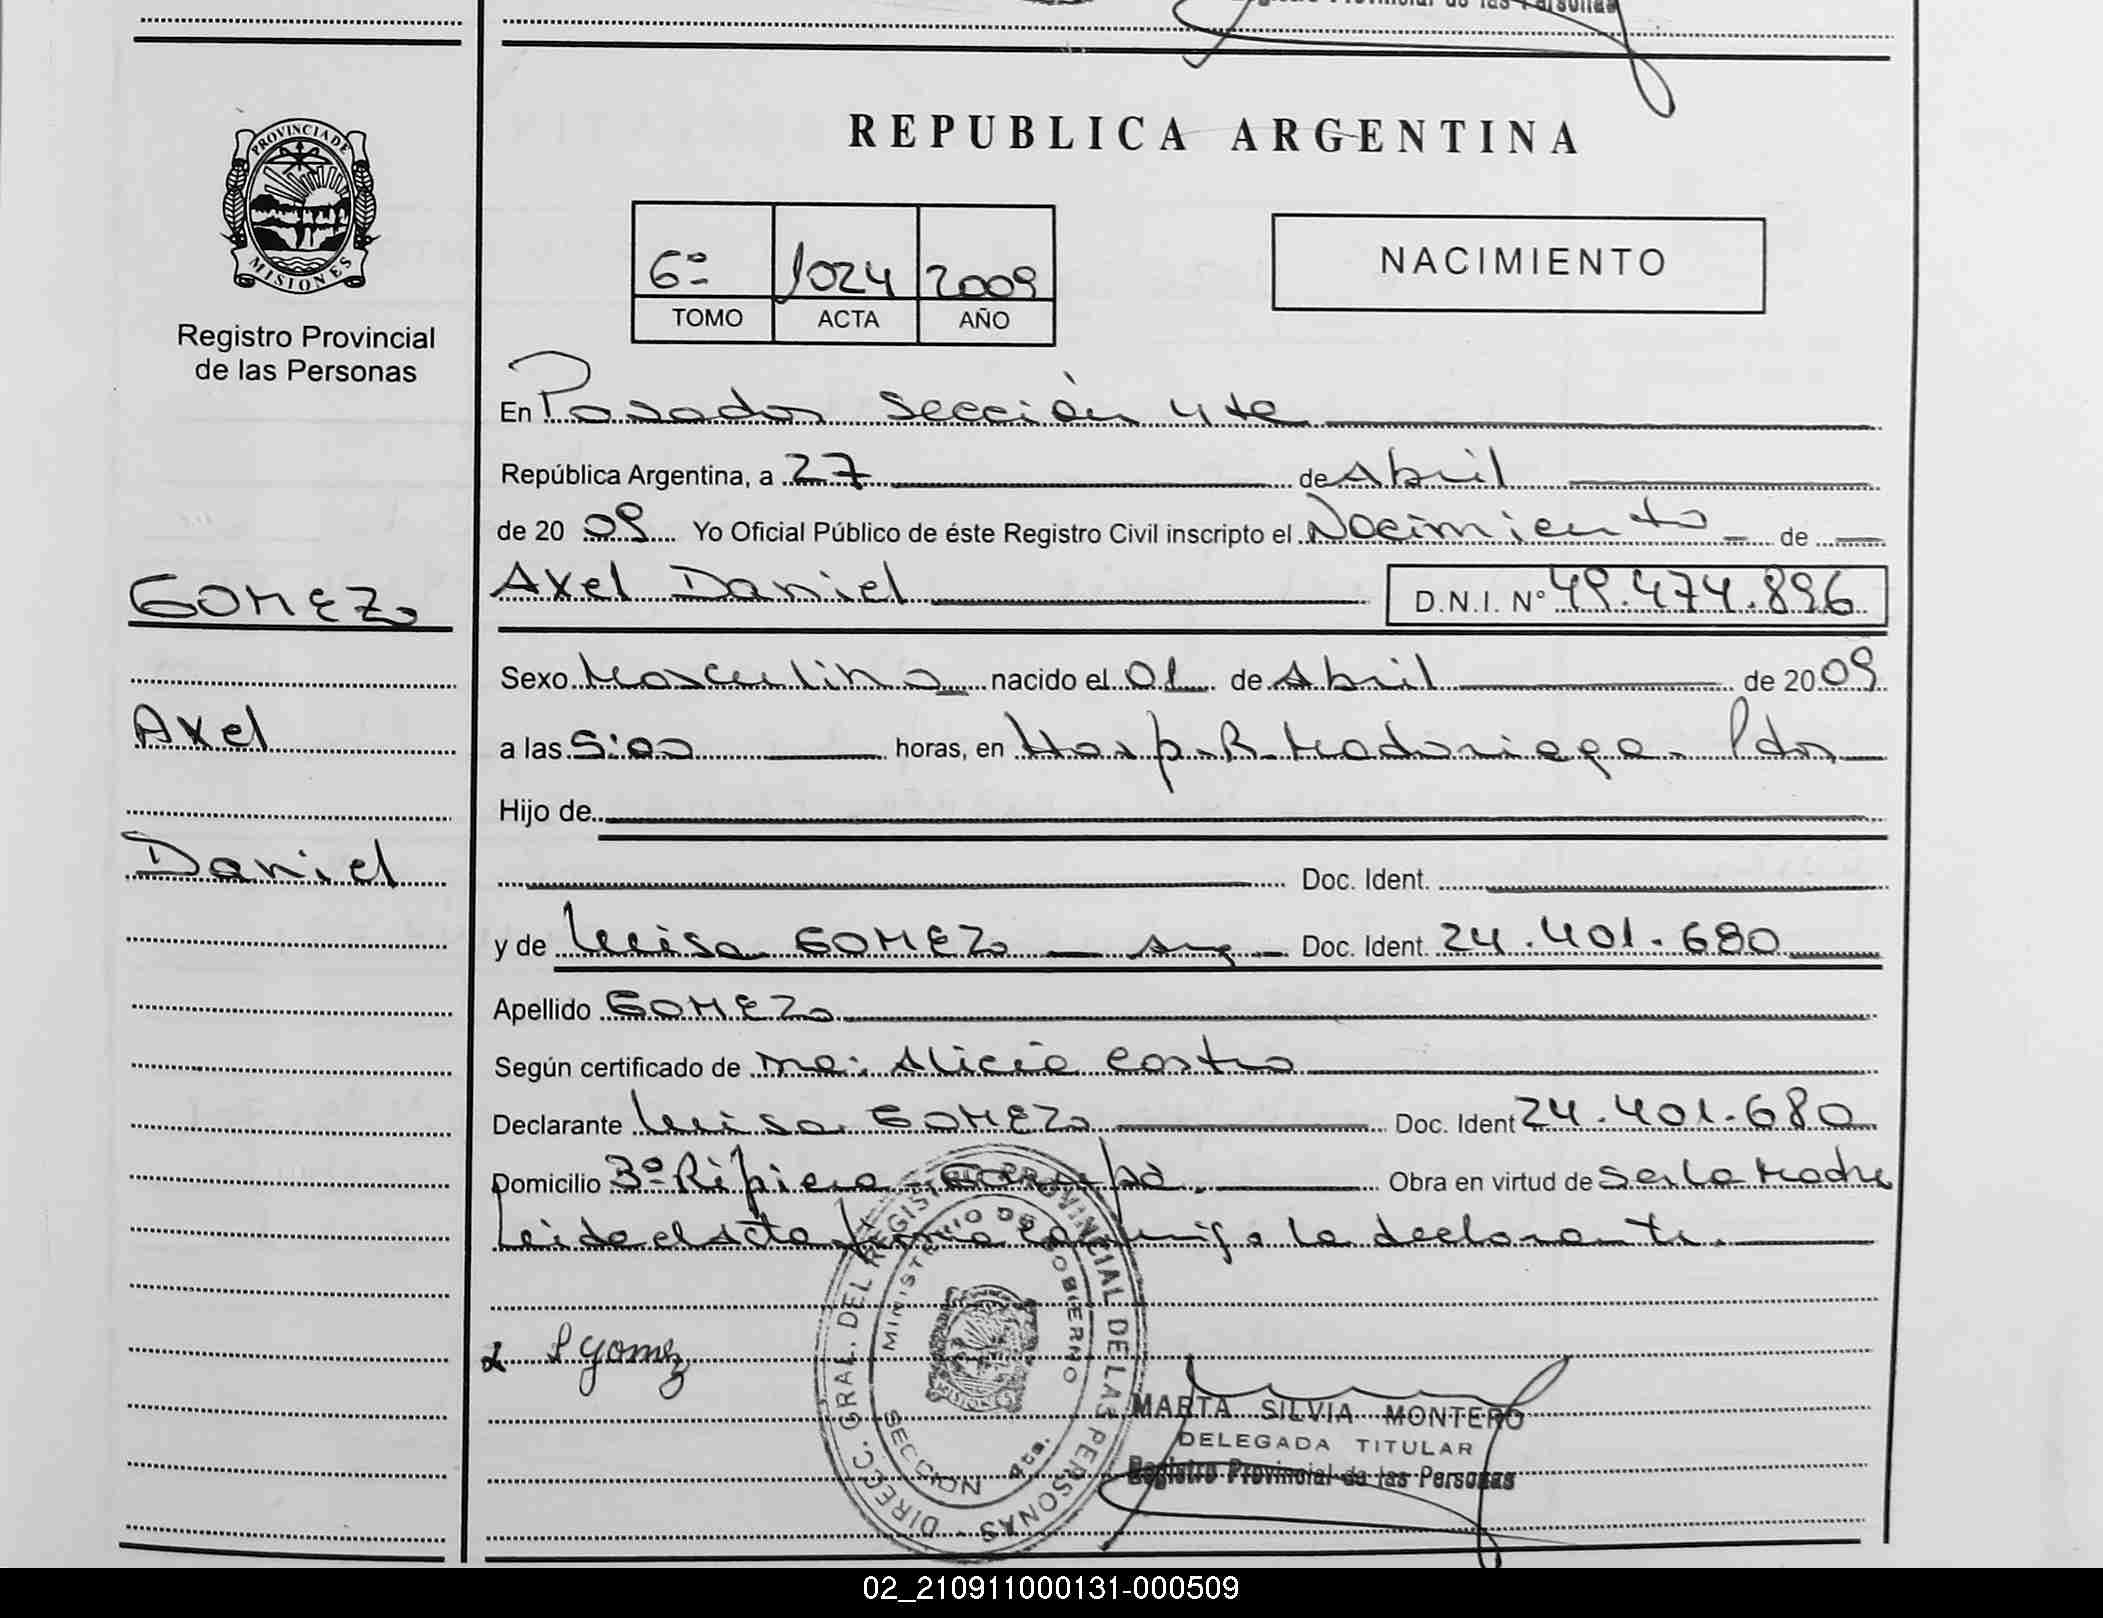 Registro Provincial de las Personas
PROVINCIA DE
MISIONES
Registro Provincial
de las Personas
REPUBLICA ARGENTINA
6º 1024 2009
TOMO ACTA AÑO
NACIMIENTO
En Posadas sección 4ta
República Argentina, a 27 de Abril
de 20 09 Yo Oficial Público de éste Registro Civil inscripto el Nacimiento de
GOMEZ
Axel Daniel D.N.I. Nº 49.474.896
Sexo Masculino nacido el 01 de Abril de 20 09
Axel
a las 5:00 horas, en Hosp. R. Madariaga - Pdas
Hijo de
Daniel
Doc. Ident.
y de Luisa GOMEZ - Arg - Doc. Ident. 24.401.680
Apellido GOMEZ
Según certificado de Ma. Alicia Castro
Declarante Luisa GOMEZ Doc. Ident 24.401.680
Domicilio 3º Ripiera - Garupá. Obra en virtud de Ser la Madre
Leida el Acta firma conmigo la declarante.
L Gomez
DIRECC. GRAL. DEL REGISTRO PROVINCIAL DE LAS PERSONAS
MINISTERIO DE GOBIERNO
SECCION 4ta.
MARTA SILVIA MONTERO
DELEGADA TITULAR
Registro Provincial de las Personas
02_210911000131-000509